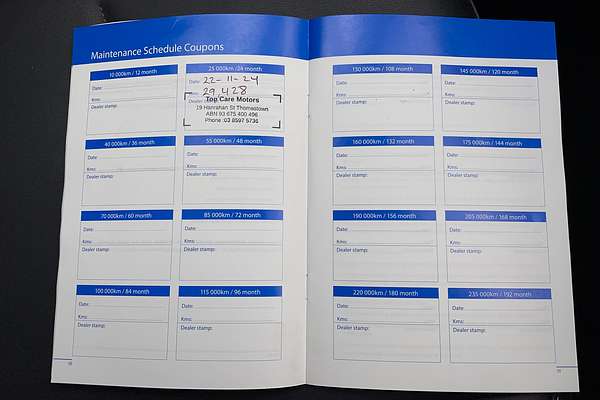 Maintenance Schedule Coupons
10 000km / 12 month
Date:
Kms:
Dealer stamp:
25 000km /24 month
Date: 22-11-24
Kms: 29,428
Dealer
Top Care Motors
19 Hanrahan St Thomastown
ABN 93 675 400 496
Phone :03 8597 5736
40 000km / 36 month
Date:
Kms:
Dealer stamp:
55 000km / 48 month
Date:
Kms:
Dealer stamp:
70 000km / 60 month
Date:
Kms:
Dealer stamp:
85 000km / 72 month
Date:
Kms:
Dealer stamp:
100 000km / 84 month
Date:
Kms:
Dealer stamp:
115 000km / 96 month
Date:
Kms:
Dealer stamp:
130 000km / 108 month
Date:
Kms:
Dealer stamp:
145 000km / 120 month
Date:
Kms:
Dealer stamp:
160 000km / 132 month
Date:
Kms:
Dealer stamp:
175 000km / 144 month
Date:
Kms:
Dealer stamp:
190 000km / 156 month
Date:
Kms:
Dealer stamp:
205 000km / 168 month
Date:
Kms:
Dealer stamp:
220 000km / 180 month
Date:
Kms:
Dealer stamp:
235 000km / 192 month
Date:
Kms:
Dealer stamp: